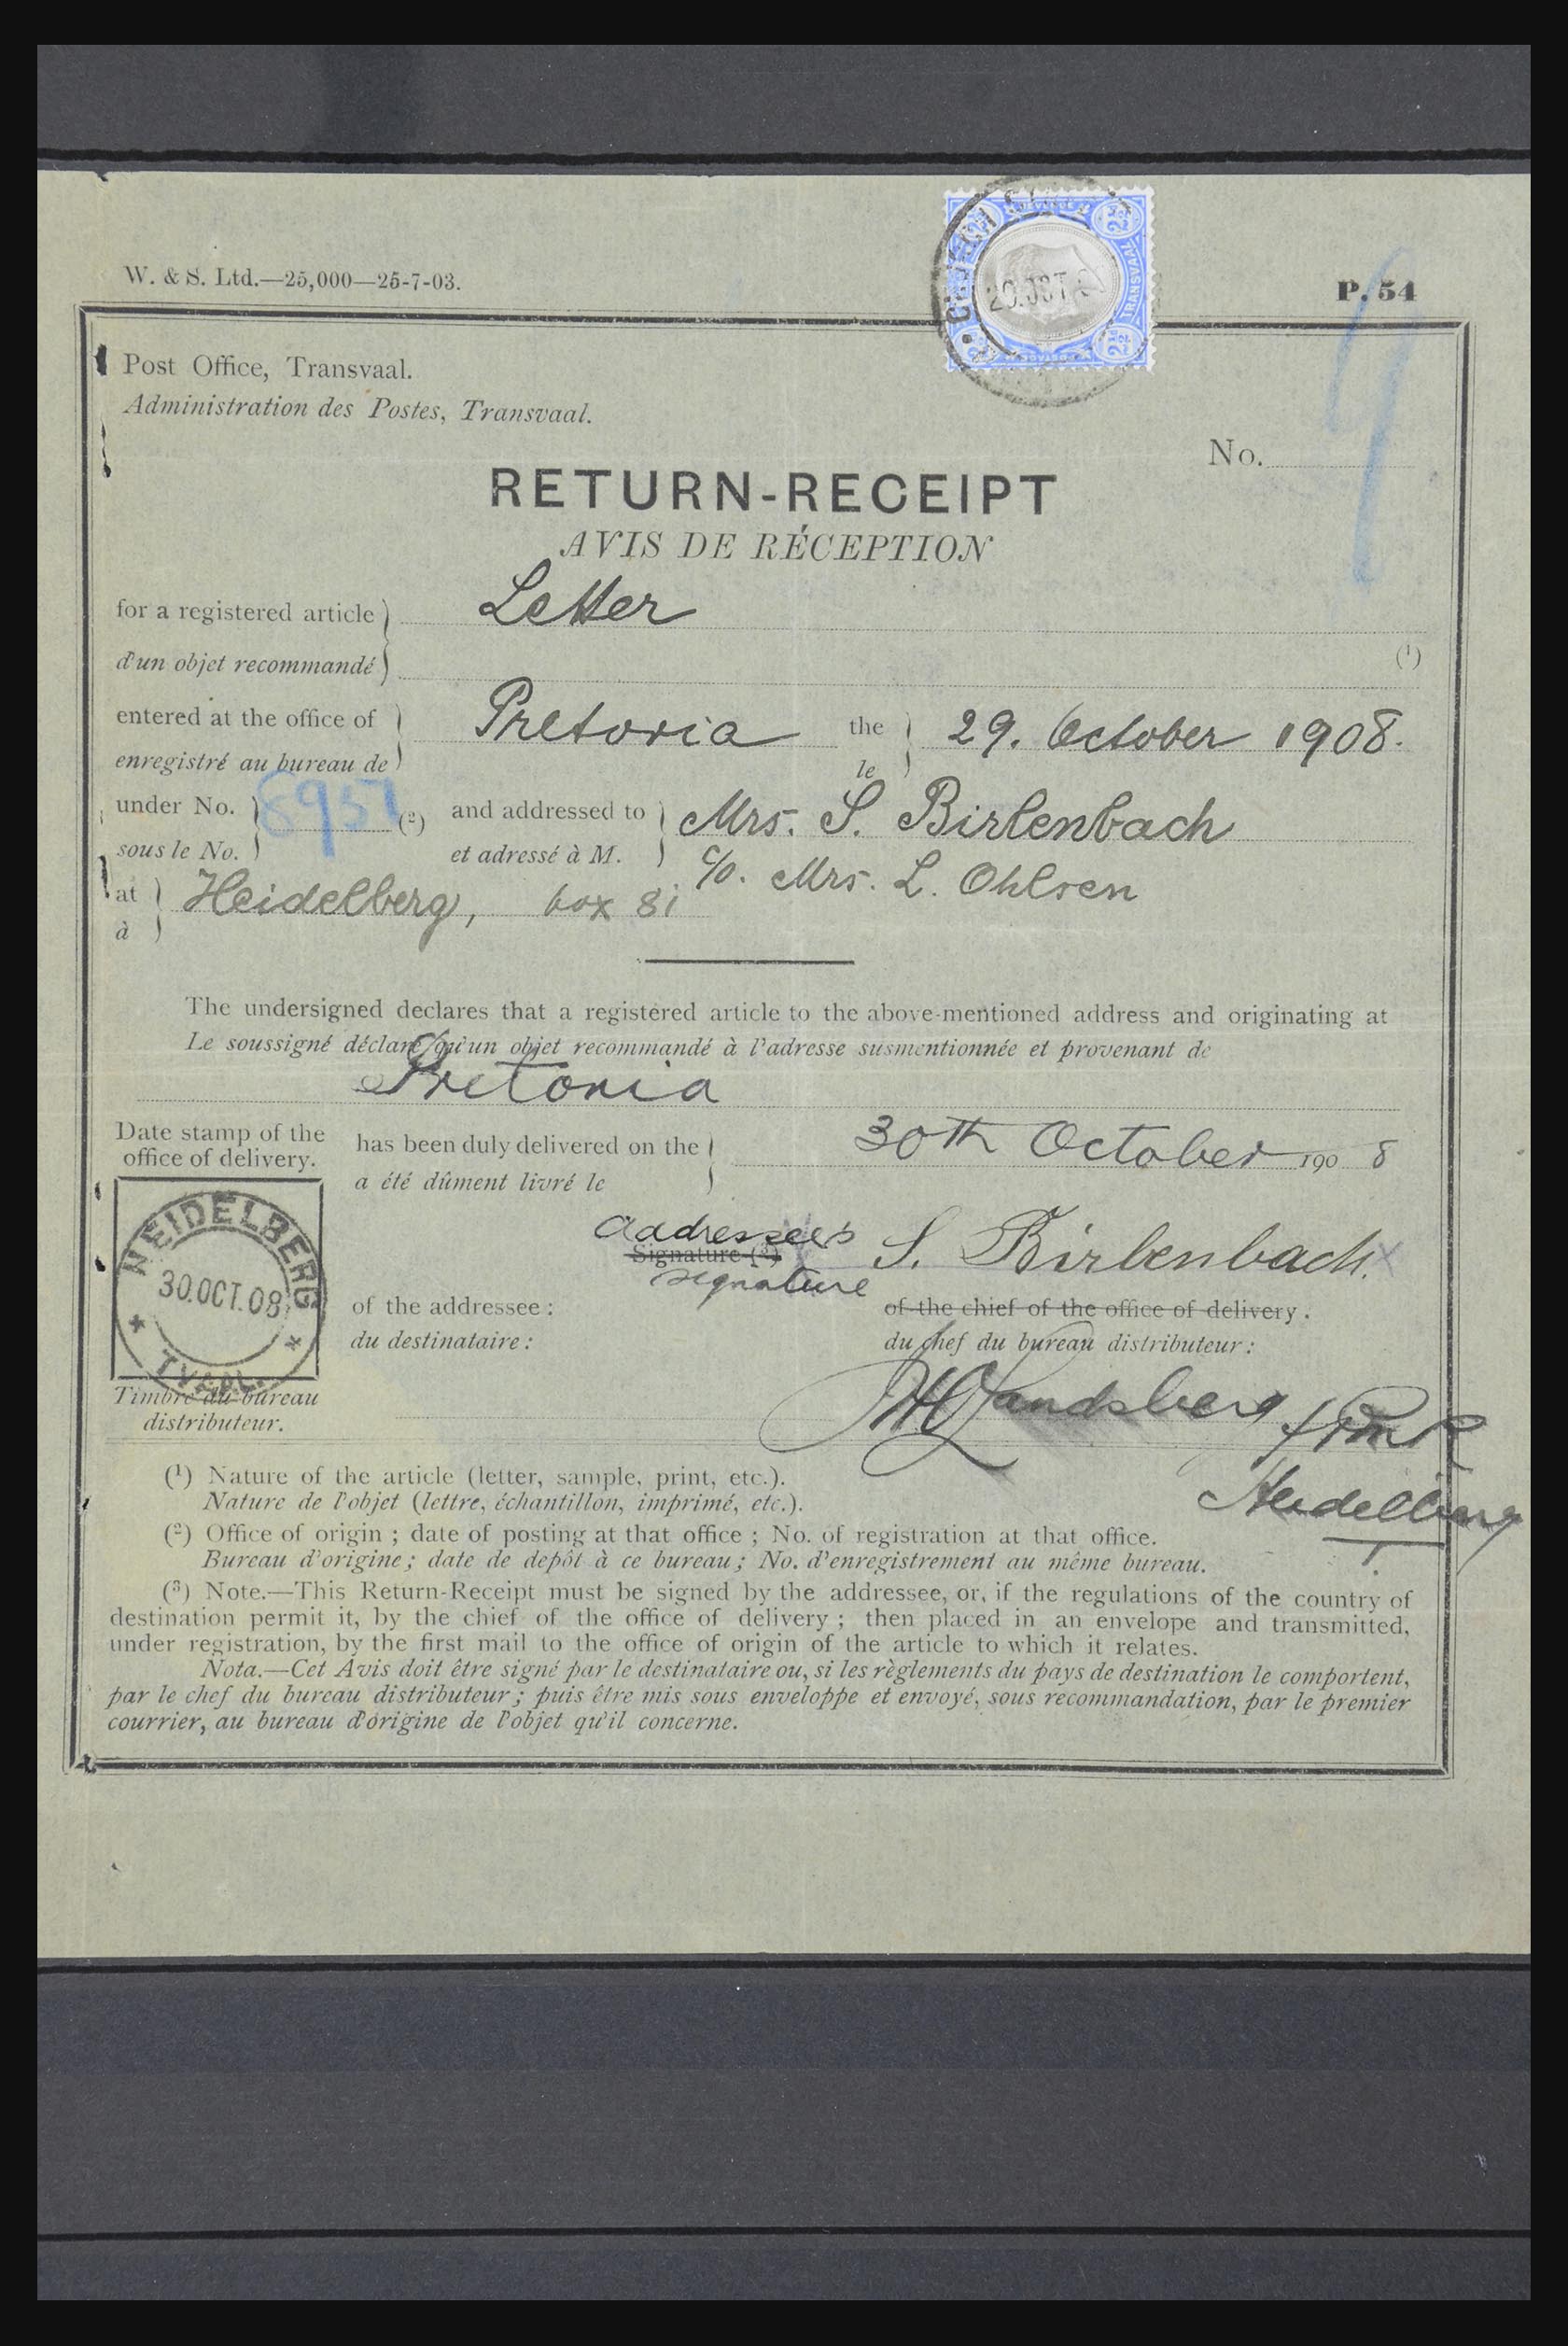 W. & S. Ltd.—25,000—25-7-03.
P. 54
REVENUE
2½d 2½d
TRANSVAAL
POSTAGE
2½d 2½d
CHURCH
29.OCT
Post Office, Transvaal.
Administration des Postes, Transvaal.
No.
9
RETURN-RECEIPT
AVIS DE RÉCEPTION
for a registered article Letter
d'un objet recommandé (1)
entered at the office of Pretoria the 29. October 1908.
enregistré au bureau de le
under No. 8957 (2) and addressed to Mrs. S. Birlenbach
sous le No. et adressé à M. c/o. Mrs. L. Ohlsen
at Heidelberg, box 81
à
The undersigned declares that a registered article to the above-mentioned address and originating at
Le soussigné déclare qu'un objet recommandé à l'adresse susmentionnée et provenant de
Pretoria
Date stamp of the
office of delivery.
has been duly delivered on the 30th October 1908
a été dûment livré le
HEIDELBERG
30.OCT.08
TVAAL.
Addressee's
Signature (3)
signature
S. Birlenbach.
of the addressee :
of the chief of the office of delivery.
du destinataire :
du chef du bureau distributeur :
Timbre du bureau
distributeur.
Landsberg
Heidelberg
(1) Nature of the article (letter, sample, print, etc.).
Nature de l'objet (lettre, échantillon, imprimé, etc.).
(2) Office of origin ; date of posting at that office ; No. of registration at that office.
Bureau d'origine ; date de depôt à ce bureau ; No. d'enregistrement au même bureau.
(3) Note.—This Return-Receipt must be signed by the addressee, or, if the regulations of the country of
destination permit it, by the chief of the office of delivery ; then placed in an envelope and transmitted,
under registration, by the first mail to the office of origin of the article to which it relates.
Nota.—Cet Avis doit être signé par le destinataire ou, si les règlements du pays de destination le comportent,
par le chef du bureau distributeur ; puis être mis sous enveloppe et envoyé, sous recommandation, par le premier
courrier, au bureau d'origine de l'objet qu'il concerne.